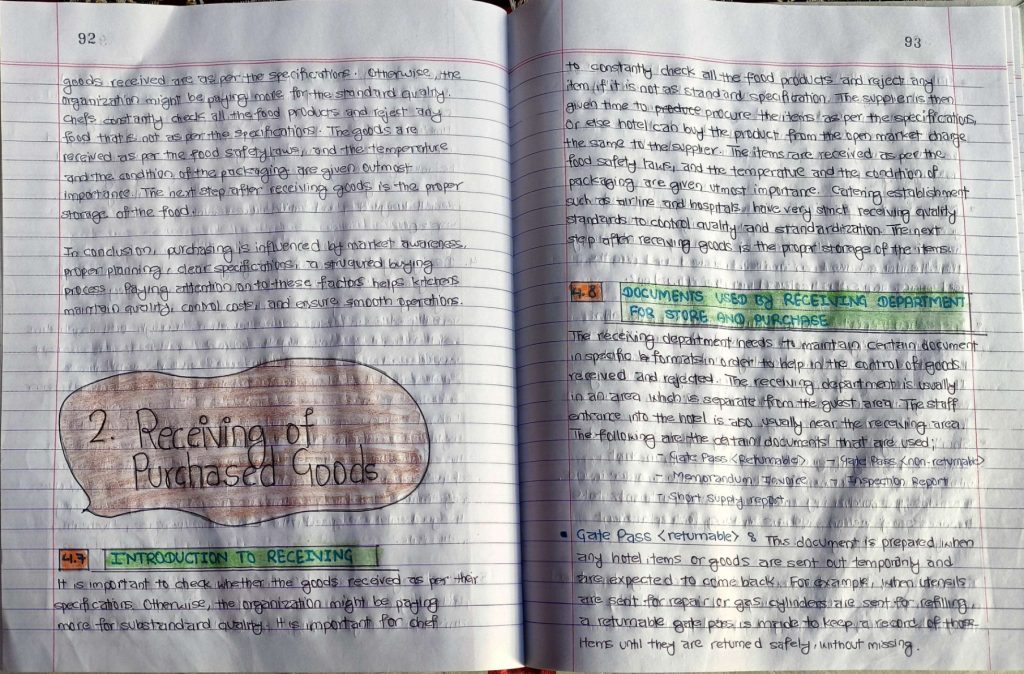 92
goods received are as per the specifications. Otherwise, the
organization might be paying more for the standard quality.
Chefs constantly check all the food products and reject any
food that is not as per the specifications. The goods are
received as per the food safety laws, and the temperature
and the condition of the packaging are given outmost
importance. The next step after receiving goods is the proper
storage of the food.
In conclusion, purchasing is influenced by market awareness,
proper planning, clear specifications, a struqured buying
process. Paying attention on to these factors helps kitchens
maintain quality, control costs, and ensure smooth operations.
2. Receiving of
Purchased Goods
4.7 INTRODUCTION TO RECEIVING
It is important to check whether the goods received as per their
specifications. Otherwise, the organization might be paying
more for substandard quality. It is important for chef
93
to constantly check all the food products and reject any
item, if it is not as standard specification. The supplier is then
given time to produce procure the items as per the specification,
Or else hotel can buy the product from the open market charge
the same to the supplier. The items are received as per the
food safety laws, and the temperature and the condition of
packaging are given utmost importance. Catering establishment
such as airline and hospitals, have very strict receiving quality
standards to control quality and standardization. The next
step after receiving goods is the proper storage of the items.
4.8 DOCUMENTS USED BY RECEIVING DEPARTMENT
FOR STORE AND PURCHASE
The receiving department needs to maintain certain document
in specific formats in order to help in the control of goods
received and rejected. The receiving department is usually
in an area which is separate from the guest area. The staff
entrance into the hotel is also usually near the receiving area.
The following are the certain documents that are used;
- Gate Pass <Returnable> - Gate Pass <non-returnable>
- Memorandum Invoice - Inspection Report
- Short supply report
• Gate Pass <returnable> : This document is prepared when
any hotel items or goods are sent out temporarily and
are expected to come back. For example, when utensils
are sent for repair or gas cylinders are sent for refilling,
a returnable gate pass is made to keep a record of those
items until they are returned safely, without missing.